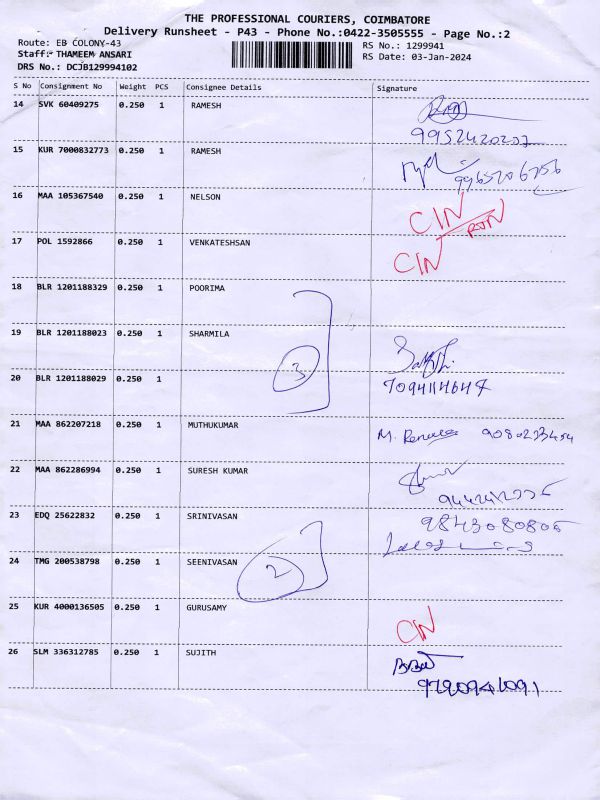 THE PROFESSIONAL COURIERS, COIMBATORE
Delivery Runsheet - P43 - Phone No.:0422-3505555 - Page No.:2
Route: EB COLONY-43
RS No.: 1299941
Staff:- THAMEEM ANSARI
RS Date: 03-Jan-2024
DRS No.: DCJB129994102
S No Consignment No Weight PCS Consignee Details Signature
14 SVK 60409275 0.250 1 RAMESH
9952420207
15 KUR 7000832773 0.250 1 RAMESH
9965206756
16 MAA 105367540 0.250 1 NELSON
CIN
RTN
17 POL 1592866 0.250 1 VENKATESHSAN
CIN
18 BLR 1201188329 0.250 1 POORIMA
19 BLR 1201188023 0.250 1 SHARMILA
3
20 BLR 1201188029 0.250 1
7094114647
21 MAA 862207218 0.250 1 MUTHUKUMAR
M.
22 MAA 862286994 0.250 1 SURESH KUMAR
23 EDQ 25622832 0.250 1 SRINIVASAN
9843080806
24 TMG 200538798 0.250 1 SEENIVASAN
2
25 KUR 4000136505 0.250 1 GURUSAMY
CIN
26 SLM 336312785 0.250 1 SUJITH
9790941091